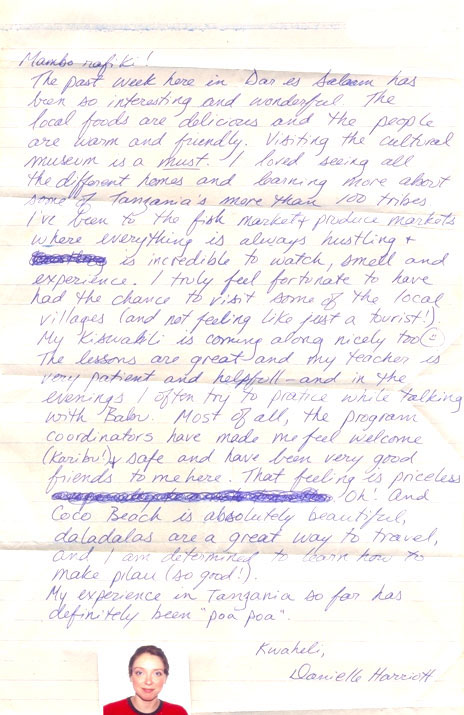 Mambo rafiki!
The past week here in Dar es Salaam has
been so interesting and wonderful. The
local foods are delicious and the people
are warm and friendly. Visiting the cultural
museum is a must. I loved seeing all
the different homes and learning more about
some of Tanzania's more than 100 tribes
I've been to the fish market + produce markets
where everything is always hustling +
is incredible to watch, smell and
experience. I truly feel fortunate to have
had the chance to visit some of the local
villages (and not feeling like just a tourist!).
My Kiswahili is coming along nicely too
The lessons are great and my teacher is
very patient and helpfull - and in the
evenings I often try to pratice while talking
with Babu. Most of all, the program
coordinators have made me feel welcome
(Karibu!) + safe and have been very good
friends to me here. That feeling is priceless
Oh! And
Coco Beach is absolutely beautiful,
daladalas are a great way to travel,
and I am determined to learn how to
make pilau (so good!).
My experience in Tanzania so far has
definitely been "poa poa".
Kwaheli,
Danielle Harriott